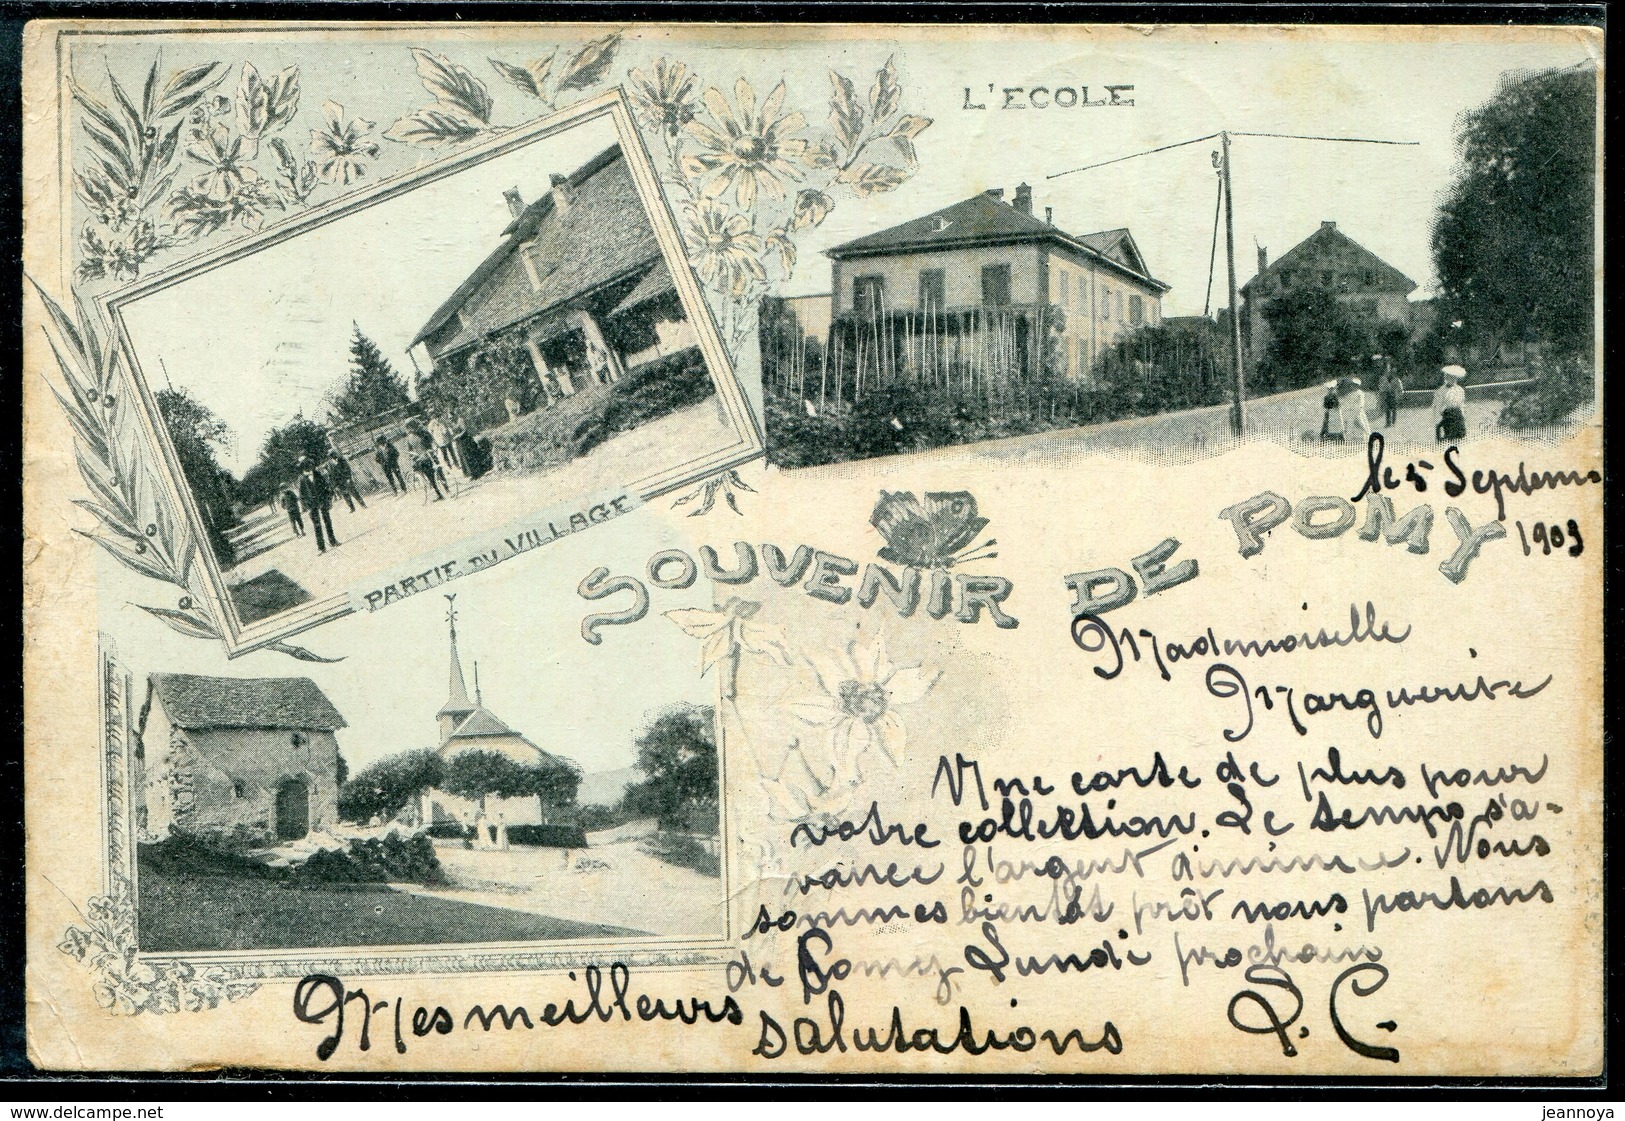 L'ECOLE
PARTIE DU VILLAGE
SOUVENIR DE POMY
le 5 Septem
1903
Mademoiselle
Marguerite
Une carte de plus pour
votre collektion. Le temps s'a-
vance l'argent diminue. Nous
sommes bientôt prêt nous partons
de Pomy Lundi prochain
Mes meilleurs
salutations P. C.
www.delcampe.net
jeannoya